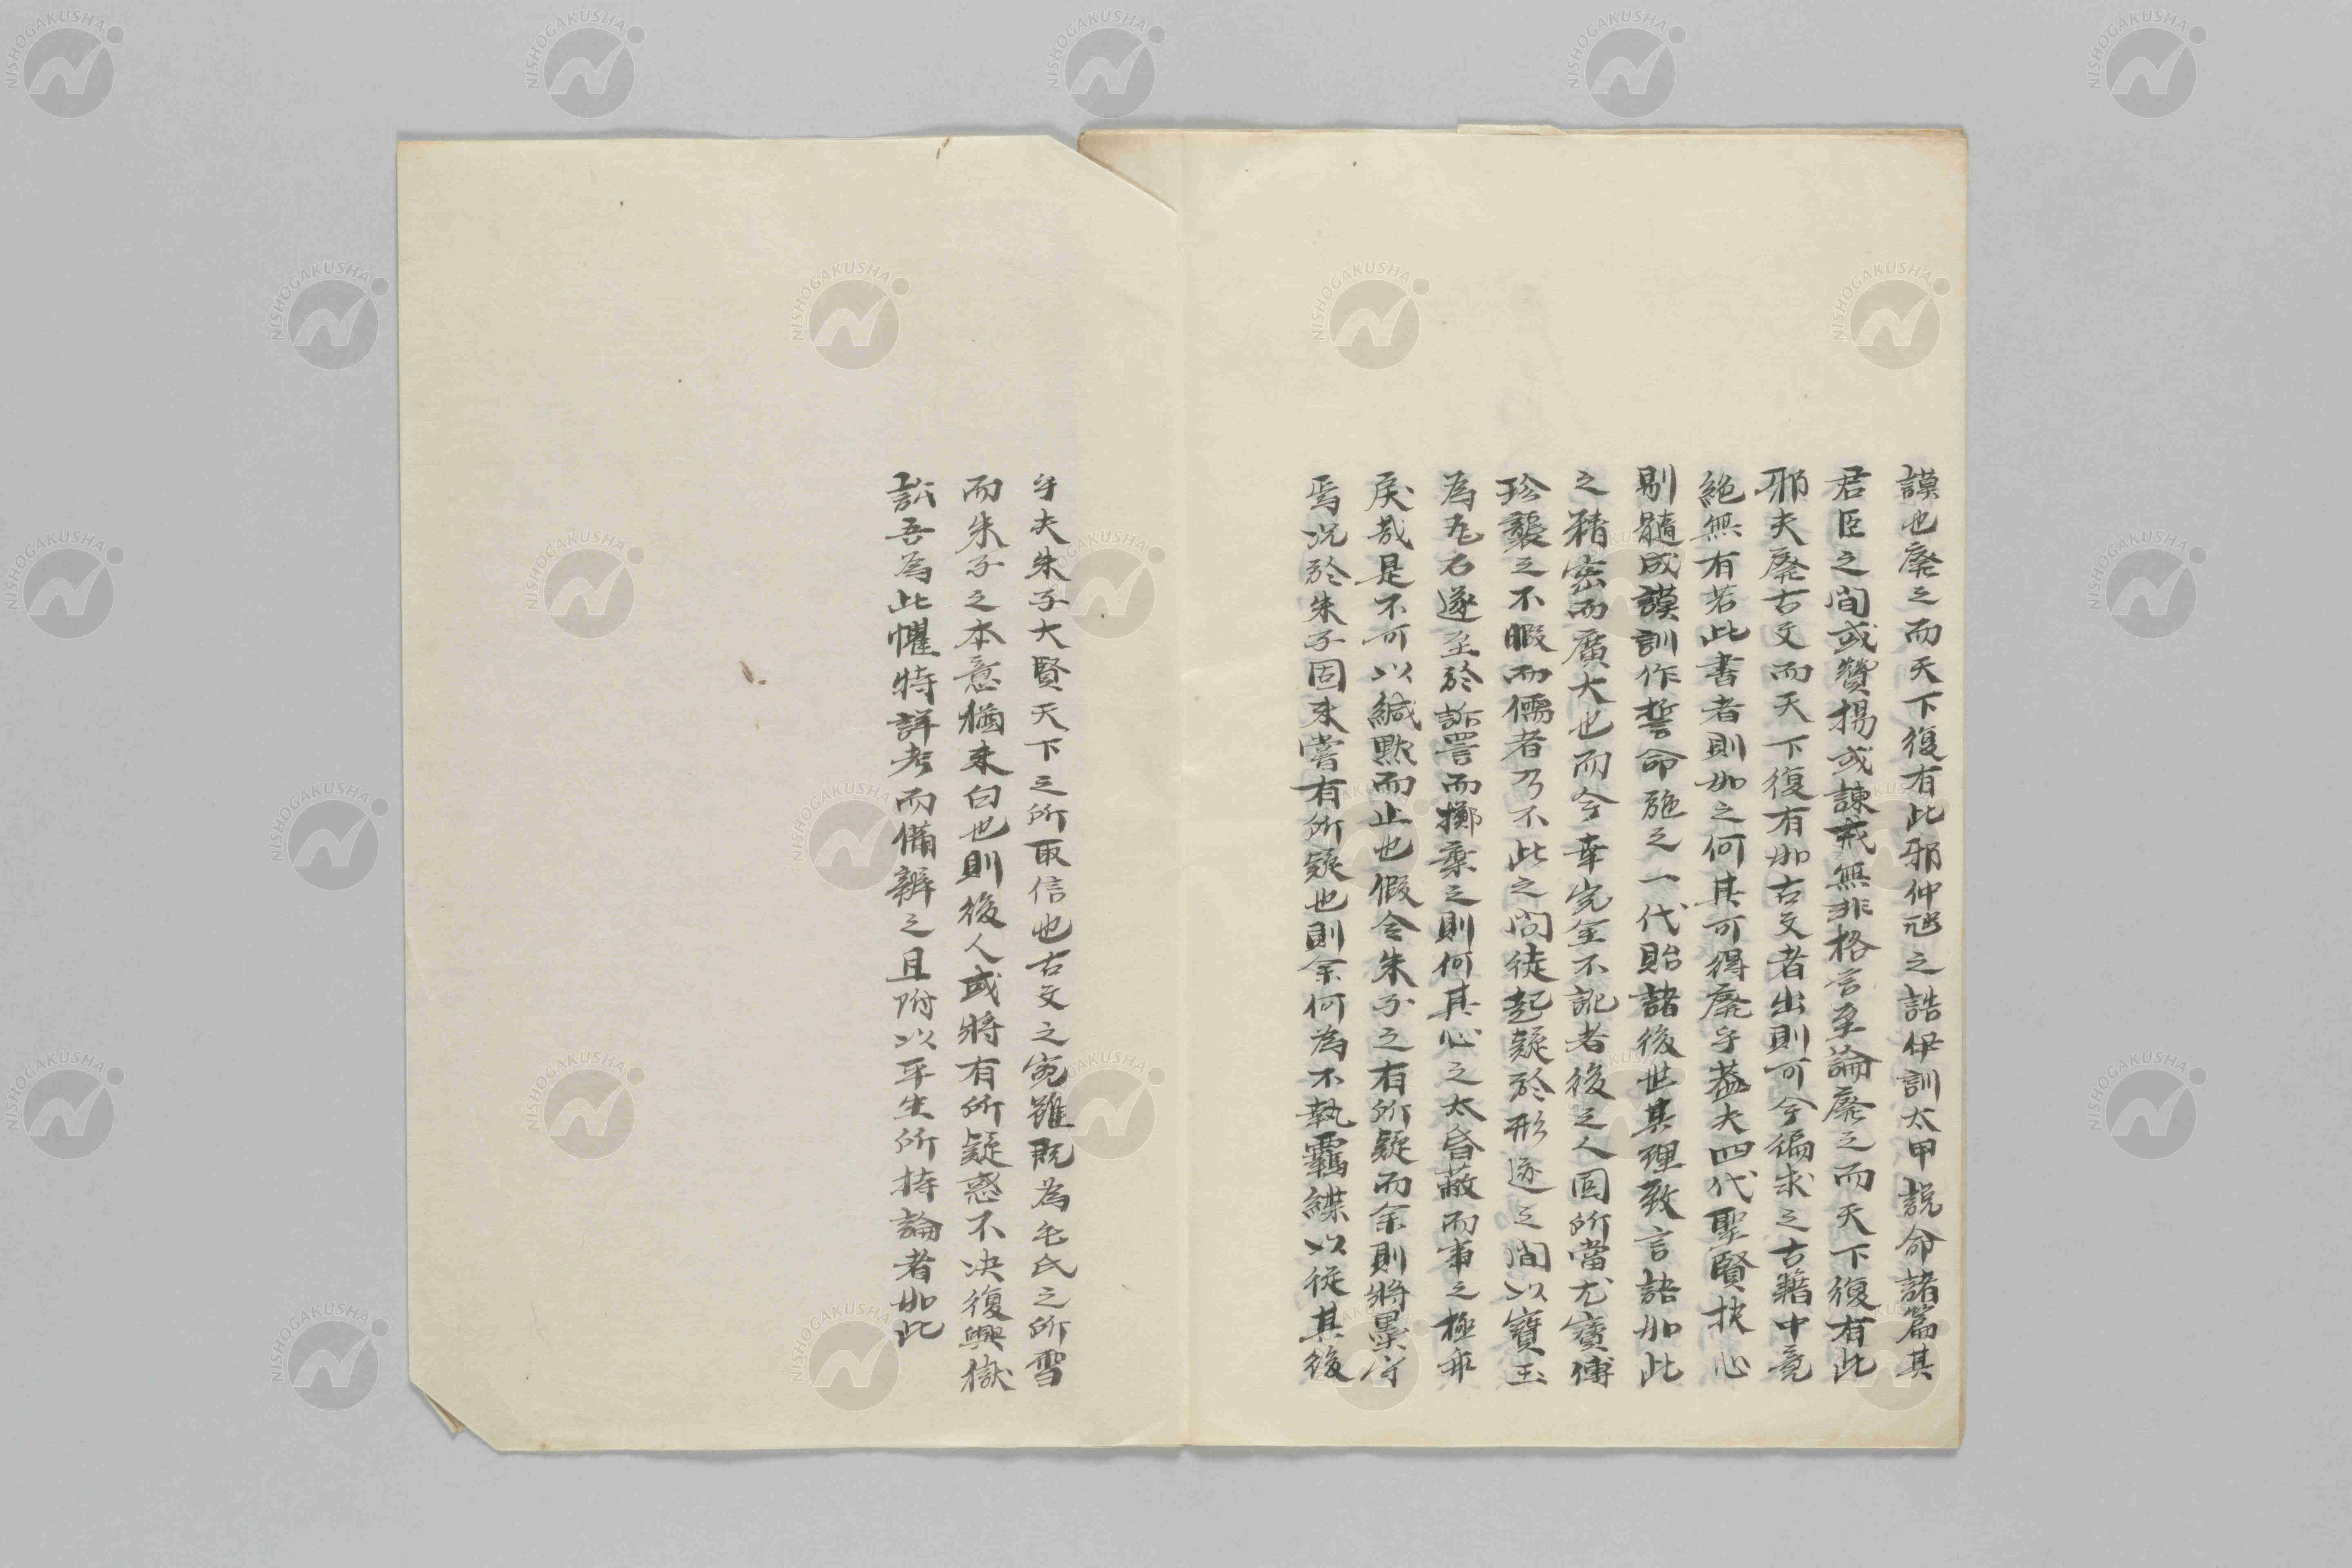 謨也廃之而天下復有此邪仲虺之誥伊訓太甲説命諸篇其
君臣之間或贊揚或諫戒無非格言至論廃之而天下復有此
邪夫廃古文而天下復有如古文者出則可今徧求之古籍中竟
絶無有若此書者則如之何其可得廃乎蓋夫四代聖賢抉心
剔髓成謨訓作誓命施之一代貽諸後世其理致言語如此
之精密而廣大也而今幸完全不訛者後之人固所當尤寶傳
珍襲之不暇而儒者乃不此之問徒起疑於形迹之間以寶玉
為瓦石遂至於詬詈而擲棄之則何其心之太昏蔽而事之極乖
戻哉是不可以緘黙而止也假令朱子之有所疑而余則將墨守
焉况於朱子固未嘗有所疑也則余何為不執羈緤以從其後
乎夫朱子大賢天下之所取信也古文之寃雖既為毛氏之所雪
而朱子之本意猶未白也則後人或將有所疑惑不决復興獄
訟吾為此懼特詳考而備辨之且附以平生所持論者如此
NISHOGAKUSHA